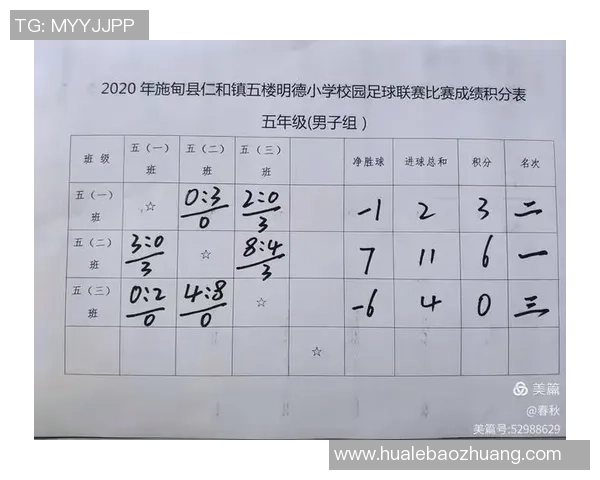 TG: MYYJJPP
2020年施甸县仁和镇五楼明德小学校园足球联赛比赛成绩积分表
五年级(男子组)
班级 五(一)班 五(二)班 五(三)班 净胜球 进球总和 积分 名次
五(一)班 ☆ 0:3/0 2:0/3 -1 2 3 二
五(二)班 3:0/3 ☆ 8:4/3 7 11 6 一
五(三)班 0:2/0 4:8/0 ☆ -6 4 0 三
☆
美篇
@春秋
美篇号:52988629
www.hualebaozhuang.com